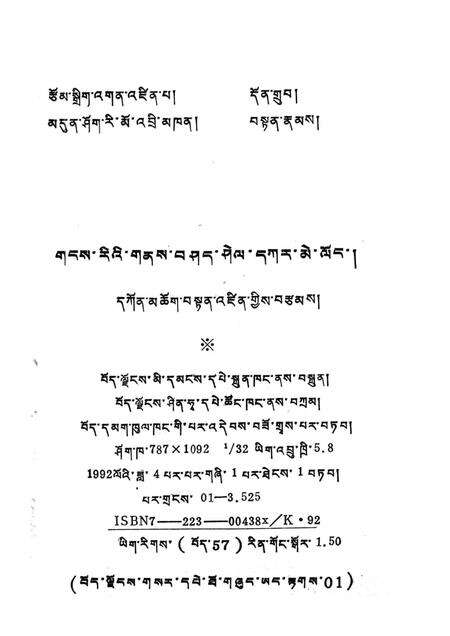 རྩོམ་སྒྲིག་འགན་འཛིན་པ། དོན་གྲུབ།
མདུན་ཤོག་རི་མོ་འབྲི་མཁན། བསྟན་རྣམས།
གངས་རིའི་གནས་བཤད་ཤེལ་དཀར་མེ་ལོང་།
དཀོན་མཆོག་བསྟན་འཛིན་གྱིས་བརྩམས།
※
བོད་ལྗོངས་མི་དམངས་དཔེ་སྐྲུན་ཁང་ནས་བསྐྲུན།
བོད་ལྗོངས་ཤིན་ཧྭ་དཔེ་ཚོང་ཁང་ནས་བཀྲམ།
བོད་དམག་ཁུལ་ཁང་གི་པར་འདེབས་བཟོ་གྲྭས་པར་བཏབ།
ཤོག་ཁ་787×1092 1/32 ཡིག་འབྲུ་ཁྲི་5.8
1992ལོའི་ཟླ་ 4 པར་པར་གཞི་ 1 པར་ཐེངས་ 1 བཏབ།
པར་གྲངས་ 01—3.525
ISBN7——223——00438x/K·92
ཡིག་རིགས་ (བོད་57) རིན་གོང་སྒོར་ 1.50
(བོད་ལྗོངས་གསར་དཔེ་ཐོ་གཞུང་ཨད་རྟགས་01)